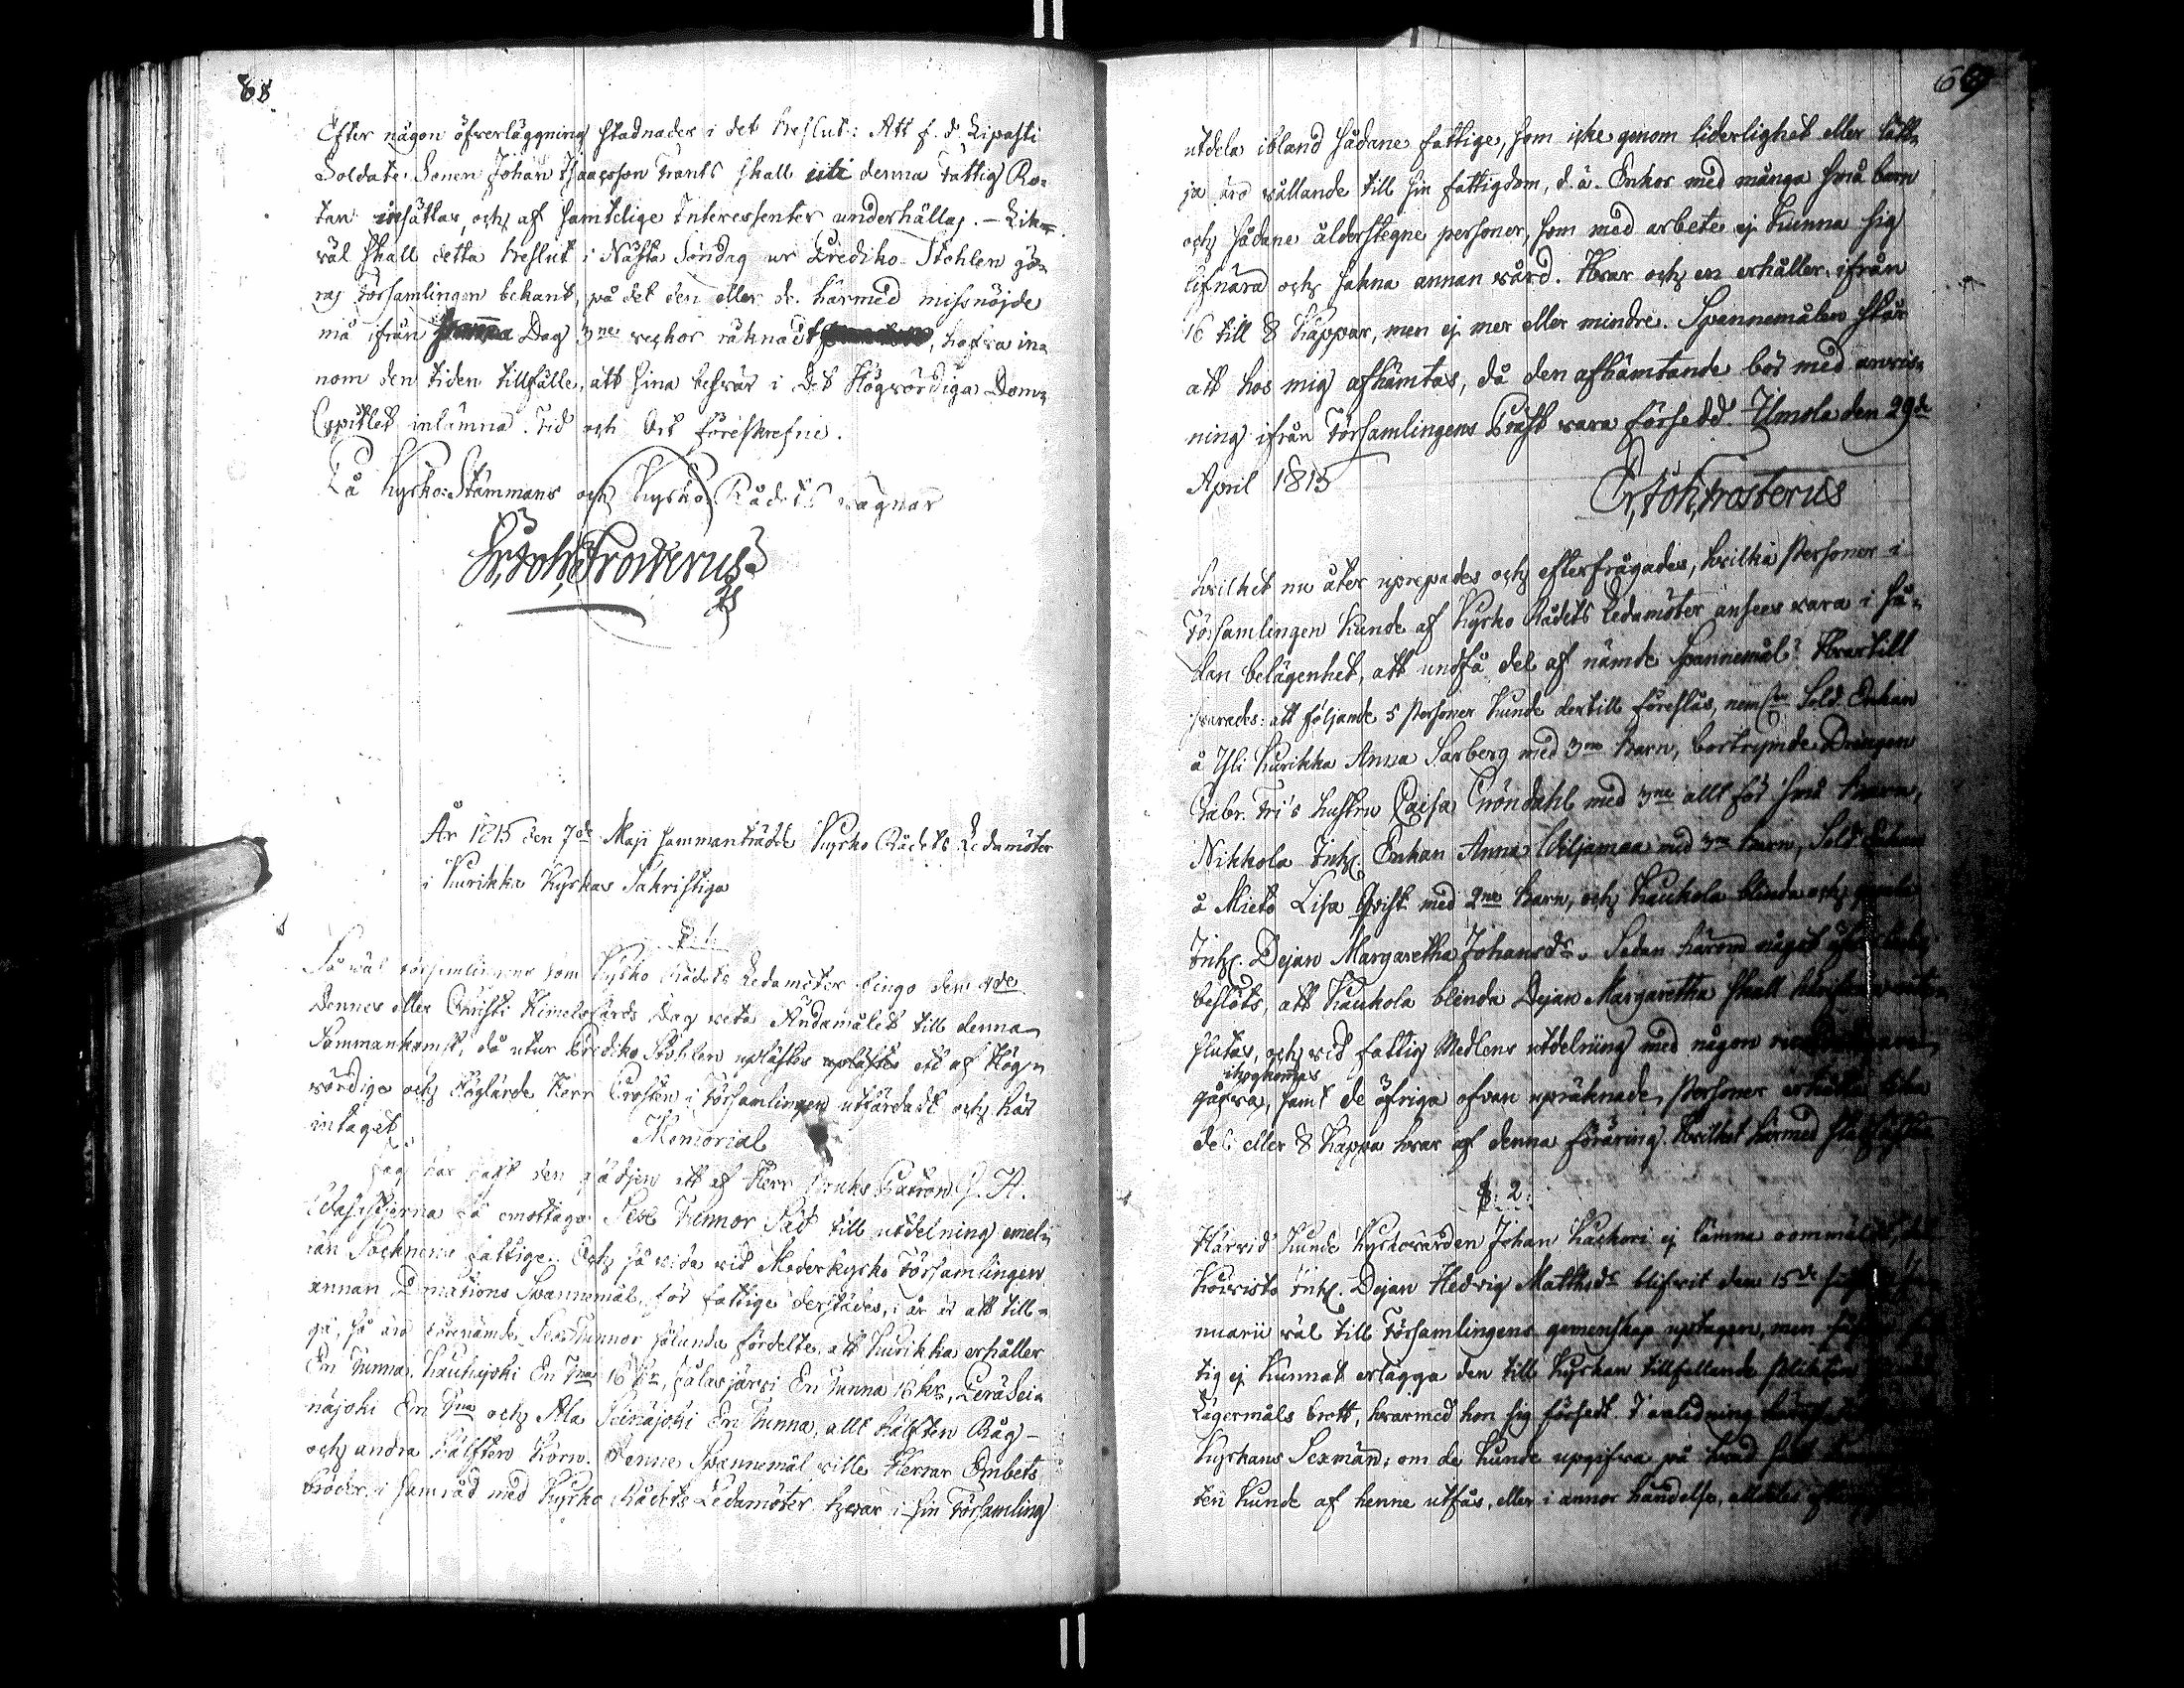 68.
Efter någon öfverläggning stadnades i det Beslut: Att f. d. Lipasti
Soldate Sonen Johan Isaacsson Frants skall uti denna Fattig Ro-
tan insättas, och af samtelige Interessenter underhållas. – Lik-
väl skall detta Beslut i Nästa Söndag ur Prediko-Stohlen gö-
ras Församlingen bekant, på det den eller de härmed missnöjde
må ifrån samma Dag 3ne veckor räknadt, hafva in-
nom den tiden tillfälle, att sina besvär i Det Högvördiga Dom-
Capitlet inlämna. Tid och Ort föreskrefne.
På Kyrko-Stämmans och Kyrko Rådets vägnar
Gr. Joh. Frosterus
År 1815 den 7de Maji sammanträdde Kyrko Rådets Ledamöter
i Kurikka Kyrkas Sakristiga
§. 1.
Så väl Församlingens som Kyrko Rådets Ledamöter fingo den 4de
dennes eller Christi Himelsfärds Dag veta Ändamålet till denna
Sammankomst, då utur Prediko Stohlen uplästes uplästes ett af Hög-
vördige och Höglärde Herr Prosten i Församlingen utfärdadt och här
intaget
Memorial
Jag har haft den glädjen att af Herr Bruks Patron J. A.
få emottaga Sex Tunnor Säd till utdelning emel-
lan Socknens fattige. Och så vida vid Moderkyrko Församlingen
annan Donations Spannemål, för fattige derstädes, i år är att till-
gå, så äro förenämde Sex Tunnor sålunda fördelte, att Kurikka erhåller
En Tunna, Kauhajoki En Tna 16 kr, Jalasjärvi En Tunna 16 kr, Peräsei-
näjoki En Tna och Ala Seinäjoki En Tunna, allt hälften Råg –
och andra hälften Korn. Denne Spannemål ville Herrar Embets
bröder i samråd med Kyrko Rådets Ledamöter hvar i sin Församling
69
utdela ibland sådane fattige, som icke genom liderlighet eller lätt-
ja äro vållande till sin fattigdom, d. ä. Enkor med många små barn
och sådane ålderstegne personer, som med arbete ej kunna sig
lifnära och sakna annan vård. Hvar och en erhåller ifrån
16 till 8 kappar, men ej mer eller mindre. Spannemålen står
att hos mig afhämtas, då den afhämtande bör med anvis-
ning ifrån Församlingens Präst vara försedd. Ilmola den 29de
April 1815
Gr. Joh. Frosterus
Hvilket nu åter uprepades och efterfrågades, hvilka Personer i
Församlingen kunde af Kyrko Rådets Ledamöter anses vara i så-
dan belägenhet, att undfå del af nämde Spannemål? Hvartill
svarades: att följande 5 Personer kunde dertill föreslås, neml. Sold. Enkan
å Yli Kurikka Anna Sarberg med 3ne Barn, bortrymde Drängen
Gabr. Fri's hustru Caisa Gröndahl med 3ne allt för små Barn,
Nikkola Inh. Enkan Anna Wiljamaa med 3ne Barn, Sold. Enkan
å Mieto Lisa Qvist med 2ne Barn, och Kaukola blinda och gamla
Inh. Dejan Margaretha Johansdr. Sedan härom något
beslöts, att Kaukola blinda Dejan Margaretha skall
slutas, och vid fattig Medlens utdelning med någon
ihogkommas
gåfva, samt de öfriga ofvan upräknade Personer erhålla lika
del eller 8 kappa hvar af denna föräring. Hvilket härmed
§: 2:
Härvid kunde Kyrkovärden Johan ej lämna oanmält,
Koivisto Inh. Dejan Hedvig Mattsdr blifvit den 15de
nuarii väl till Församlingens gemenskap uptagen, men
tig ej kunnat erlägga den till Kyrkan tillfallande plikten
Lägermåls brott, hvarmed hon sig försedt. I anledning
Kyrkans Sexmän, om de kunde upgifva på hvad sätt
ten kunde af henne utfås, eller i annor händelse,